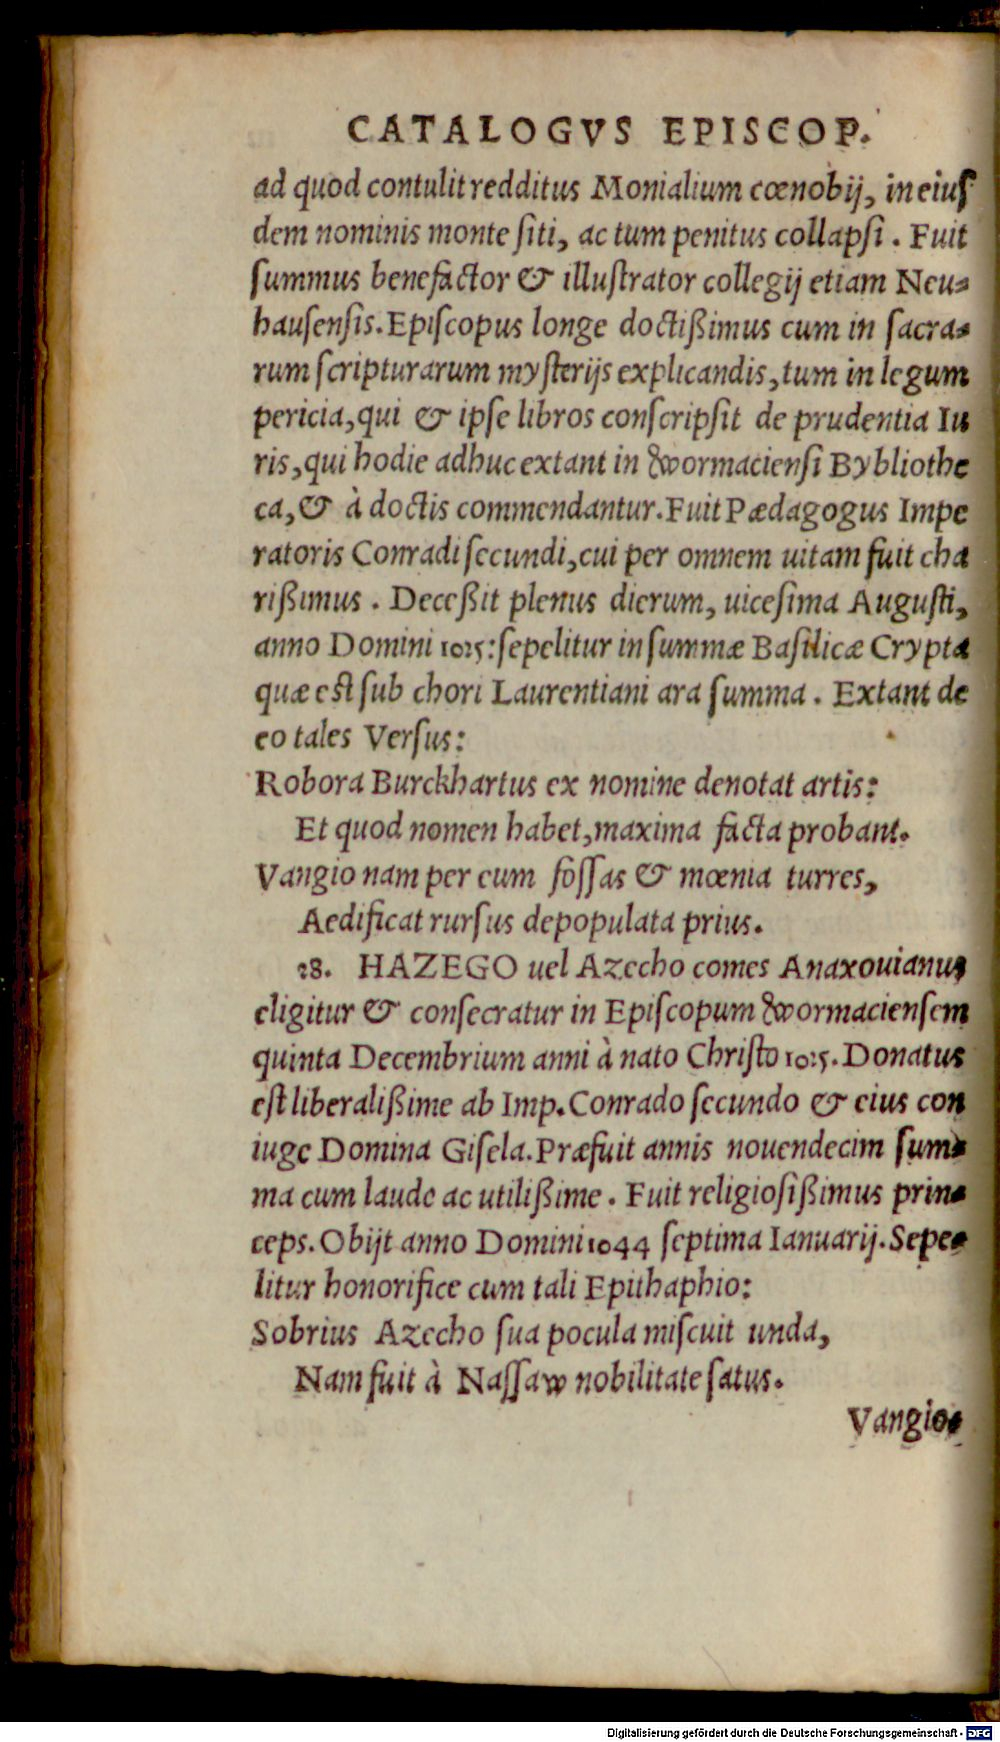 CATALOGVS EPISCOP.
ad quod contulit redditus Monialium cœnobij, in eius
dem nominis monte siti, ac tum penitus collapsi. Fuit
summus benefactor & illustrator collegij etiam Neu-
hausensis. Episcopus longe doctißimus cum in sacra-
rum scripturarum mysterijs explicandis, tum in legum
pericia, qui & ipse libros conscripsit de prudentia Iu
ris, qui hodie adhuc extant in wormaciensi Bybliothe
ca, & à doctis commendantur. Fuit Pædagogus Impe
ratoris Conradi secundi, cui per omnem uitam fuit cha
rißimus. Deceßit plenus dierum, uicesima Augusti,
anno Domini 1025: sepelitur in summæ Basilicæ Crypta
quæ est sub chori Laurentiani ara summa. Extant de
eo tales Versus:
Robora Burckhartus ex nomine denotat artis:
Et quod nomen habet, maxima facta probant.
Vangionam per eum fossas & mœnia turres,
Aedificat rursus depopulata prius.
28. HAZEGO uel Azecho comes Anaxouianus
eligitur & consecratur in Episcopum wormaciensem
quinta Decembrium anni à nato Christo 1025. Donatus
est liberalißime ab Imp. Conrado secundo & eius con
iuge Domina Gisela. Præfuit annis nouendecim sum-
ma cum laude ac utilißime. Fuit religiosißimus prin-
ceps. Obijt anno Domini 1044 septima Ianuarij. Sepe-
litur honorifice cum tali Epithaphio:
Sobrius Azecho sua pocula miscuit unda,
Nam fuit à Nassaw nobilitate satus.
Vangio-
Digitalisierung gefördert durch die Deutsche Forschungsgemeinschaft - DFG